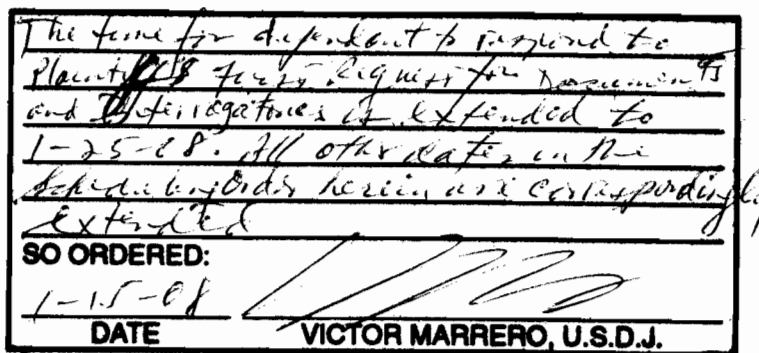 The time for defendant to respond to
Plaintiff's First Request for Documents
and Interrogatories is extended to
1-25-08. All other dates in the
Scheduling Order herein are correspondingly
extended
SO ORDERED:
1-15-08
DATE VICTOR MARRERO, U.S.D.J.